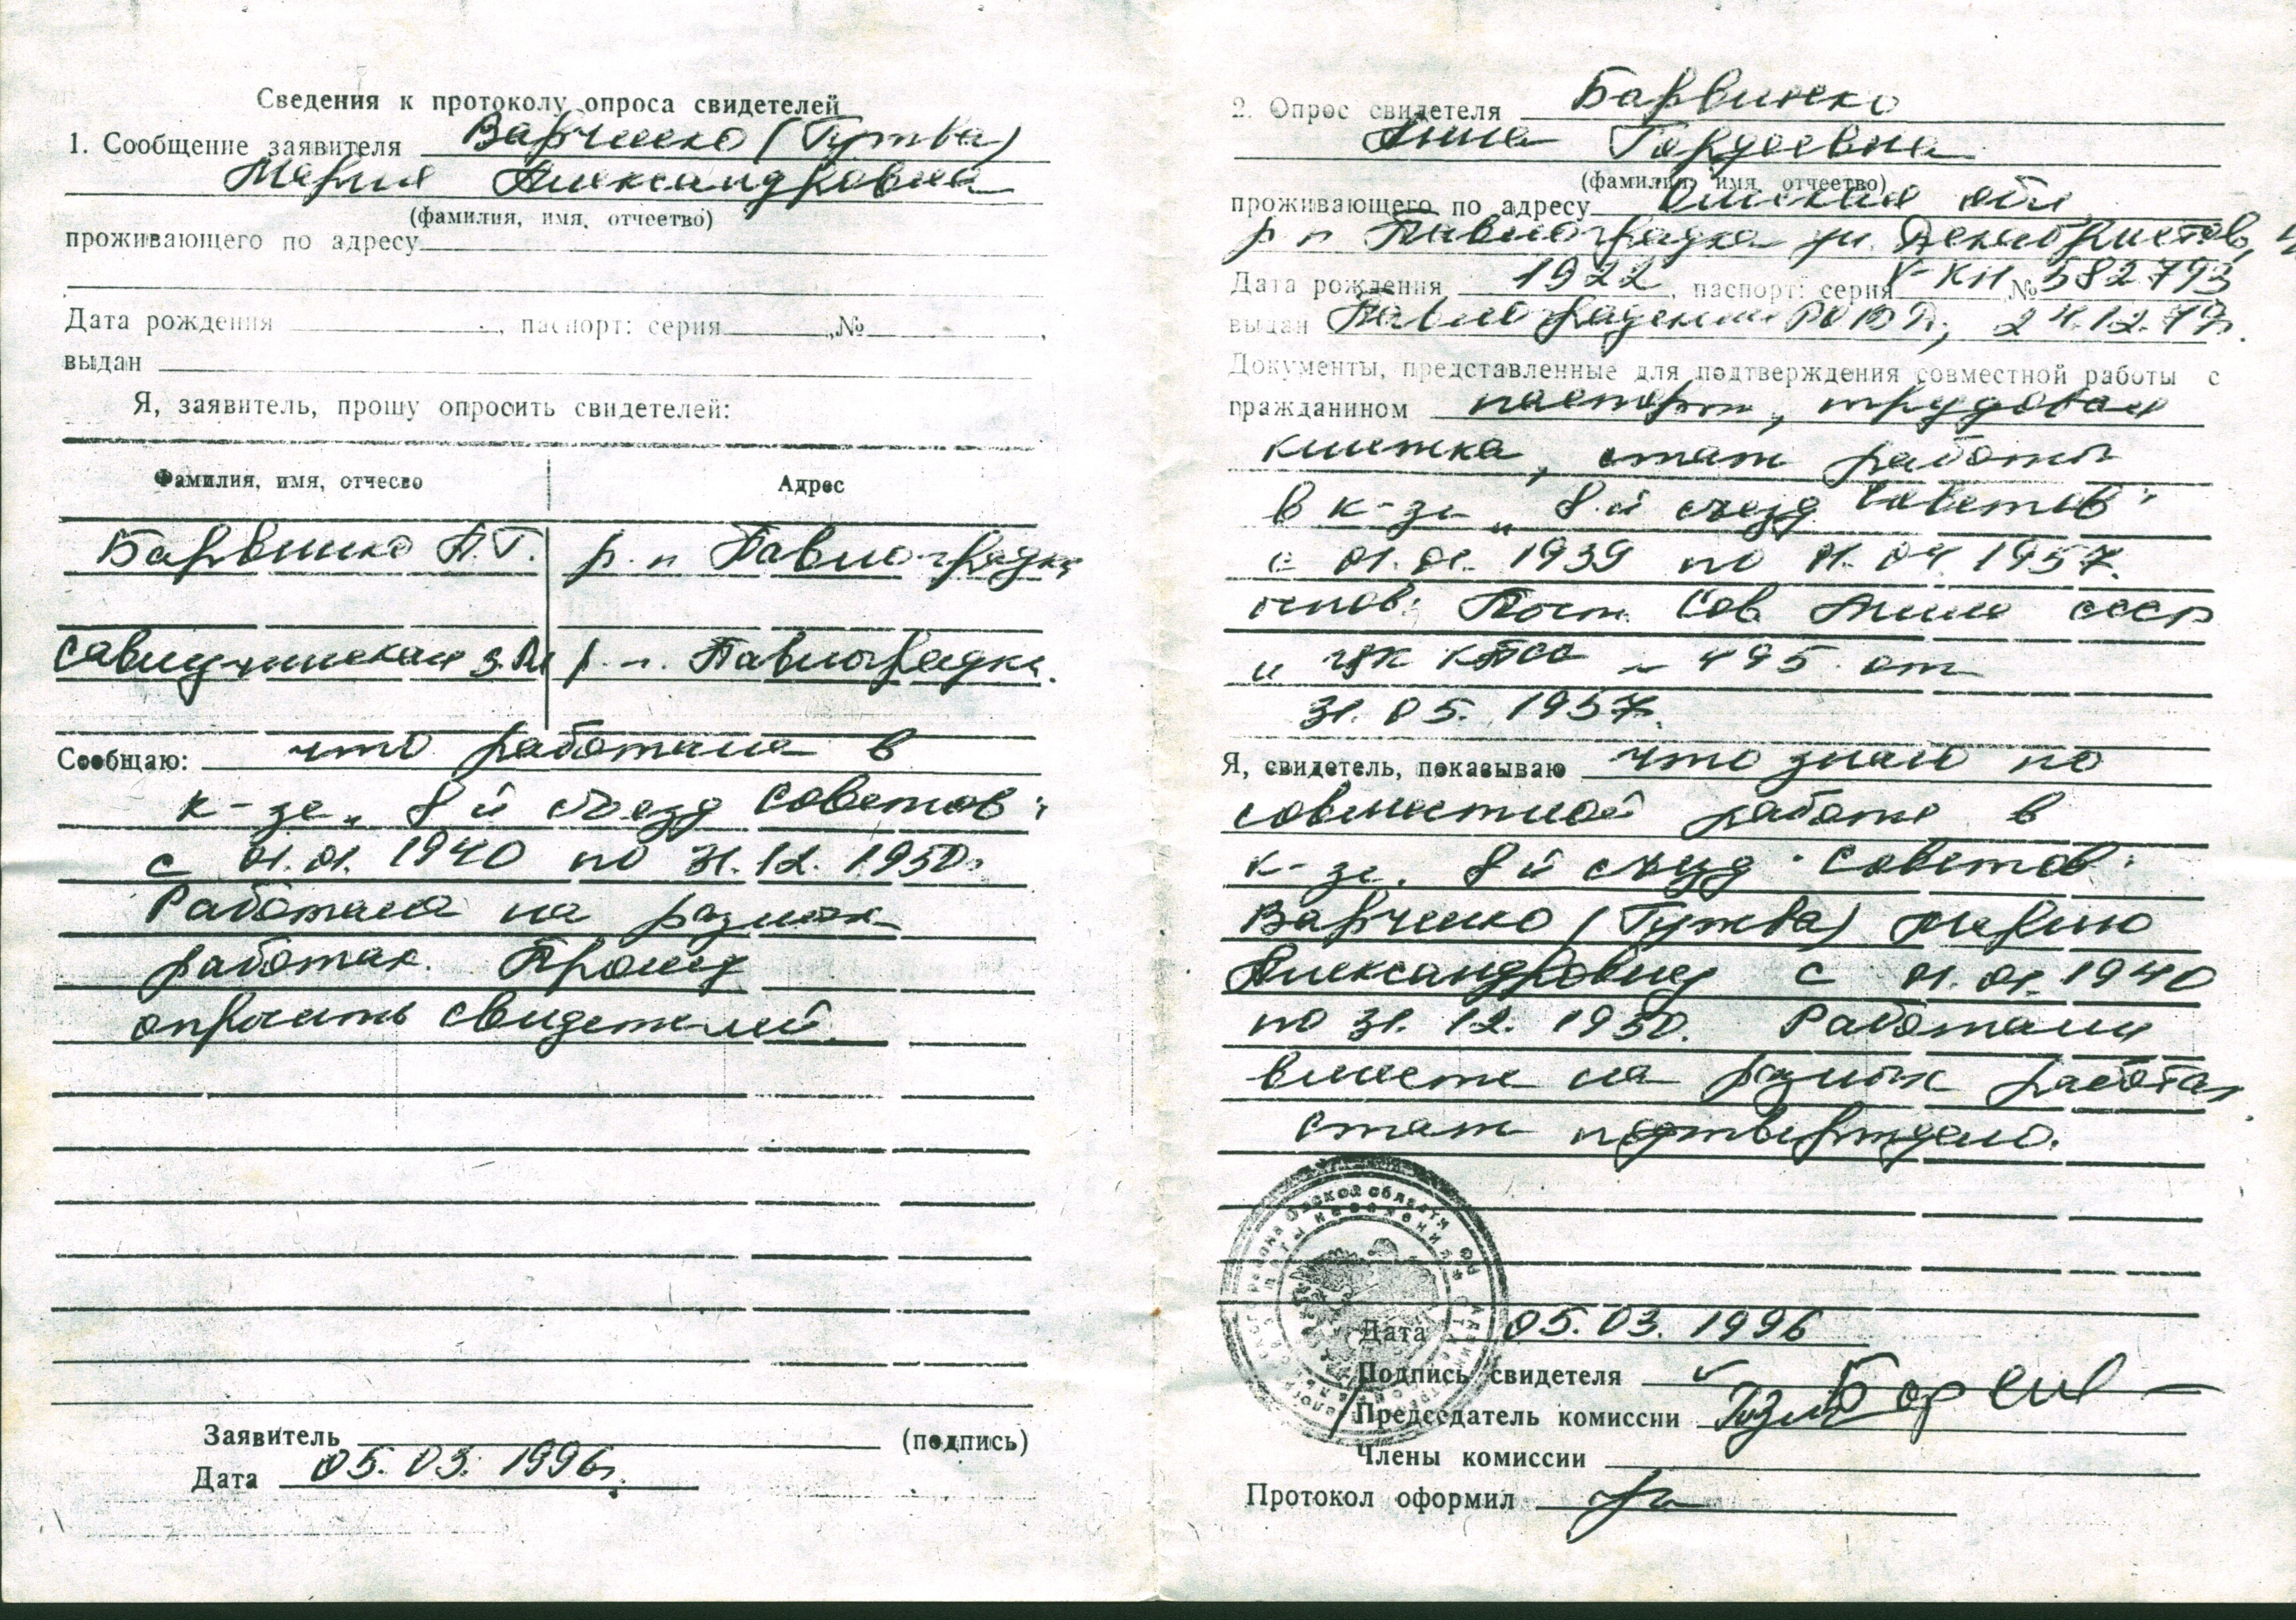 Сведения к протоколу опроса свидетелей
1. Сообщение заявителя Варченко (Гужва)
Мария Александровна
(фамилия, имя, отчеетво)
проживающего по адресу
Дата рождения , паспорт: серия №
выдан
Я, заявитель, прошу опросить свидетелей:
Фамилия, имя, отчесво Адрес
Барвинко А.Г. р. п Павлоградка
р. п. Павлоградка.
Сообщаю: что работала в
к-зе „ 8й съезд Советов"
с 01.01. 1940 по 31.12. 1950.
Работала на разных
работах. Прошу
опросить свидетелей.
Заявитель (подпись)
Дата 05. 03. 1996г.
2. Опрос свидетеля Барвинко
Анна Гордеевна
(фамилия, имя, отчеетво)
проживающего по адресу Омская обл
р п Павлоградка ул. Декабристов,
Дата рождения 1922, паспорт: серия V-КН № 582793
выдан Павлоградским РОВД, 24.12.79г.
Документы, представленные для подтверждения совместной работы с
гражданином паспорт, трудовая
книжка, стаж работы
в к-зе „ 8-й съезд Советов"
с 01.01. 1939 по 11. 04. 1957.
основ: Пост. Сов Мин СССР
и ЦК КПСС № 495 от
31. 05. 1957.
Я, свидетель, показываю что знаю по
совместной работе в
к-зе. 8й съезд Советов"
Варченко (Гужва) Марию
Александровну с 01. 01. 1940
по 31. 12. 1950. Работали
вместе на разных работах
стаж подтверждаю.
Дата 05. 03. 1996
Подпись свидетеля
Председатель комиссии
Члены комиссии
Протокол оформил